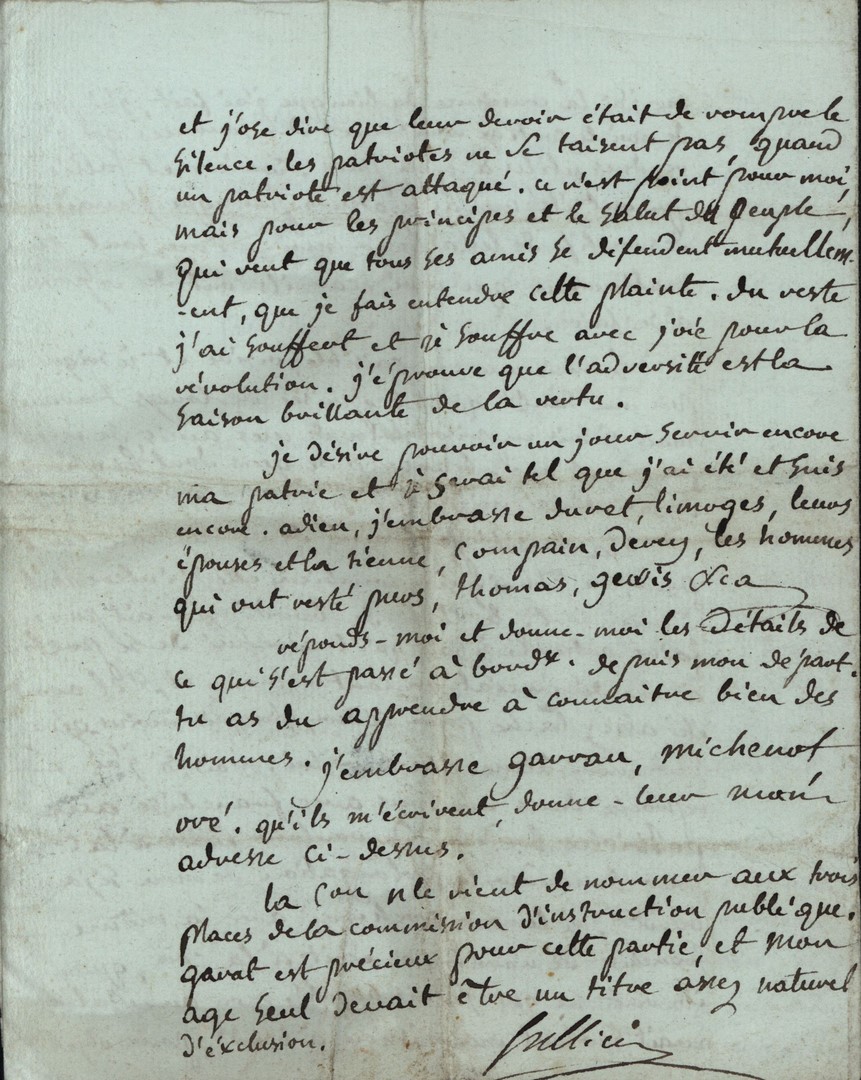 et j'ose dire que leur devoir était de rompre le
silence. les patriotes ne se taisent pas, quand
un patriote est attaqué. ce n'est point pour moi,
mais pour les principes et le salut du peuple,
qui veut que tous ses amis se défendent mutuellem-
-ent, que je fais entendre cette plainte. du reste
j'ai souffert et je souffre avec joie pour la
révolution. j'éprouve que l'adversité est la
saison brillante de la vertu.
je désire pouvoir un jour servir encore
ma patrie et je serai tel que j'ai été et suis
encore. adieu, j'embrasse duret, limoges, leurs
épouses et la tienne, Compain, devey, les hommes
qui ont resté purs, thomas, &ca
réponds-moi et donne-moi les détails de
ce qui s'est passé à bordx. depuis mon départ.
tu as du apprendre à connaitre bien des
hommes. j'embrasse garrau, michenot
oré. qu'ils m'écrivent, donne-leur mon
adresse ci-dessus.
la Con nle vient de nommer aux trois
places de la commission d'instruction publique.
garat est précieux pour cette partie, et mon
age seul devait être un titre assez naturel
d'éxclusion.
Jullien